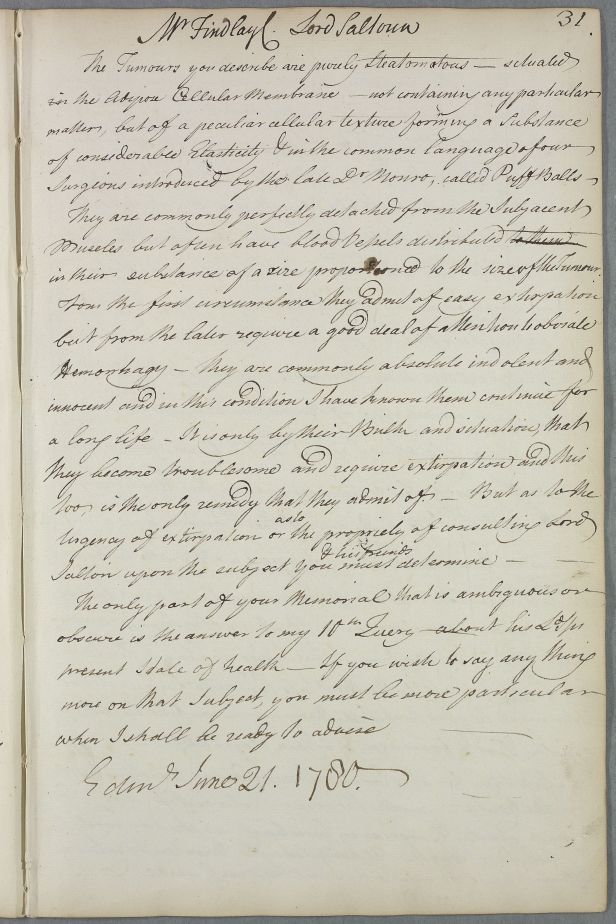 Mr Findlay C. Lord Saltoun
31.
The Tumours you describe are purely Steatomatous — situated
in the Adipose Cellular Membrane — not containing any particular
matter, but of a peculiar cellular texture forming a Substance
of considerable Elasticity & in the common language of our
Surgeons introduced by the late Dr Monro, called Puff Balls —
They are commonly perfectly detached from the Subjacent
Muscles but often have blood Vessels distributed to them
in their substance of a size proportioned to the size of the Tumour.
From the first circumstance they admit of easy extirpation
but from the later require a good deal of attention to obviate
Hemorrhagy — They are commonly absolute indolent and
innocent and in this condition I have known them continue for
a long life — It is only by their Bulk and situation, that
they become troublesome and require extirpation and this
too is the only remedy that they admit of. — But as to the
Urgency of extirpation or as to the propriety of consulting Lord
Salton upon the subject you & his friends must determine —
The only part of your Memorial that is ambiguous or
obscure is the answer to my 10th Query — about his Ldsps
present State of health — If you wish to say any thing
more on that Subject, you must be more particular
when I shall be ready to advise
Edinr June 21. 1780.